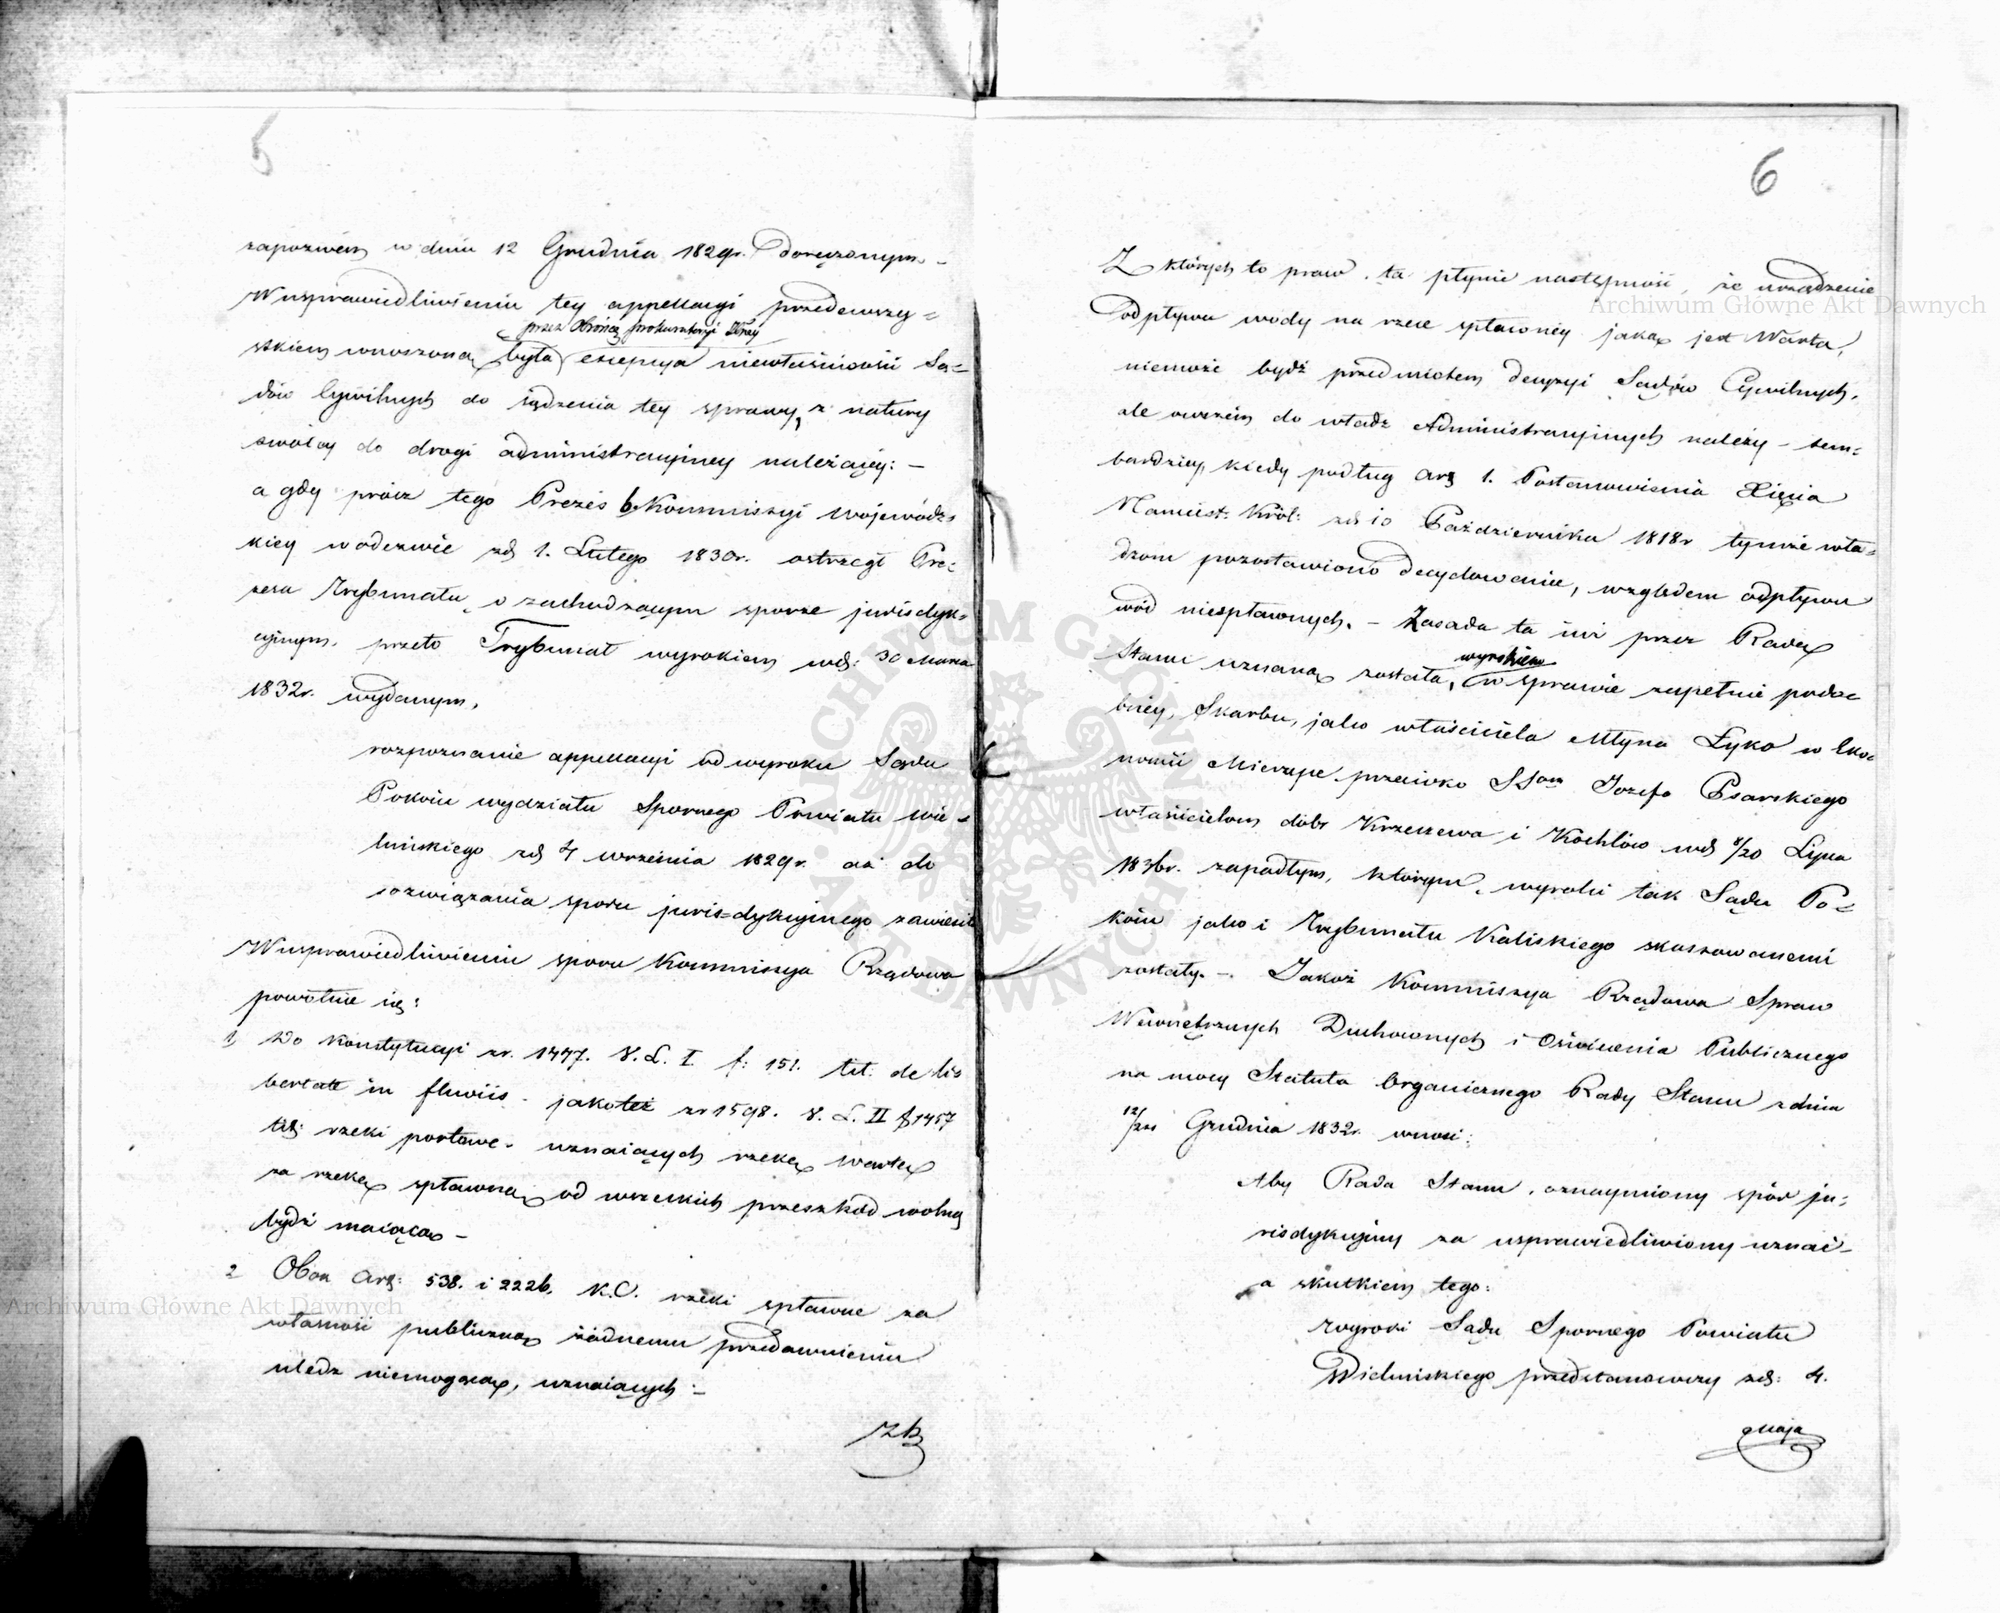 5
zapozwem w dniu 12 Grudnia 1829r. doręczonym –
W usprawiedliwieniu tey appellacyi przedewszy=
przez Obrońcę prokuratoryi Glney
stkiem wnoszoną była excepcya niewłaściwości Są=
dów Cywilnych do sądzenia tey sprawy, z natury
swoiey do drogi administracyiney należącey: –
a gdy prócz tego Prezes b. Kommissyi Wojewódz=
kiey w odezwie zd 1. Lutego 1830r. ostrzegł Pre=
zesa Trybunału o zachodzącym sporze jurisdyk=
cyinym, przeto Trybunał wyrokiem wd: 30 Marca
1832r. wydanym,
rozpoznanie appellacyi od wyroku Sądu
Pokoiu wydziału Spornego Powiatu Wie=
luńskiego zd 4 września 1829r. aż do
rozwiązania sporu juris=dykcyinego zawiesił
W usprawiedliwieniu sporu Kommissya Rządowa
powołuie się:
1, Do Konstytucyi zr. 1447. V. L. I f: 151. tit: de li=
bertate in fluviis – jakoteż zr 1598. V. L. II f 1457
tit: rzeki portowe – uznaiących rzekę Wartę
za rzekę spławną od wszelkich przeszkód wolną
bydź maiącą –
2 Obok Art: 538. i 2226. K.C. rzeki spławne za
własność publiczną żadnemu przedawnieniu
uledz niemogącą, uznaiących: –
Z k
6
Z których to praw, ta płynie następność, że urządzenie
odpływu wody na rzece spławney jaką jest Warta,
niemoże bydź przedmiotem decyzyi Sądów Cywilnych,
ale owszem do władz Administracyinych należy – tem=
bardziey, kiedy podług Art 1. Postanowienia Xięcia
Namiest: Król: zd 10 Października 1818r tymże wła=
dzom pozostawiono decydowanie, względem odpływu
wód niespławnych. – Zasada ta iuż przez Radę
wyrokiem
Stanu uznaną została, w sprawie zupełnie podo=
bney, Skarbu, jako właściciela Młyna Łyko w Eko=
nomii Mierzyce przeciwko SSom Józefa Psarskiego
właścicielom dóbr Krzeczewa i Kochlów wd 8/20 Lipca
1836r. zapadłym, którym wyroki tak Sądu Po=
koiu jako i Trybunału Kaliskiego skassowanemi
zostały. – Jakoż Kommissya Rządowa Spraw
Wewnętrznych Duchownych i Oświecenia Publicznego
na mocy Statutu Organicznego Rady Stanu z dnia
12/24 Grudnia 1832r. wnosi:
Aby Rada Stanu, oznaymiony spór ju=
risdykcyiny za usprawiedliwiony uznać –
a skutkiem tego:
wyroki Sądu Spornego Powiatu
Wieluńskiego przedstanowczy zd: 4.
Maja
Archiwum Główne Akt Dawnych
Archiwum Główne Akt Dawnych
ARCHIWUM GŁÓWNE AKT DAWNYCH